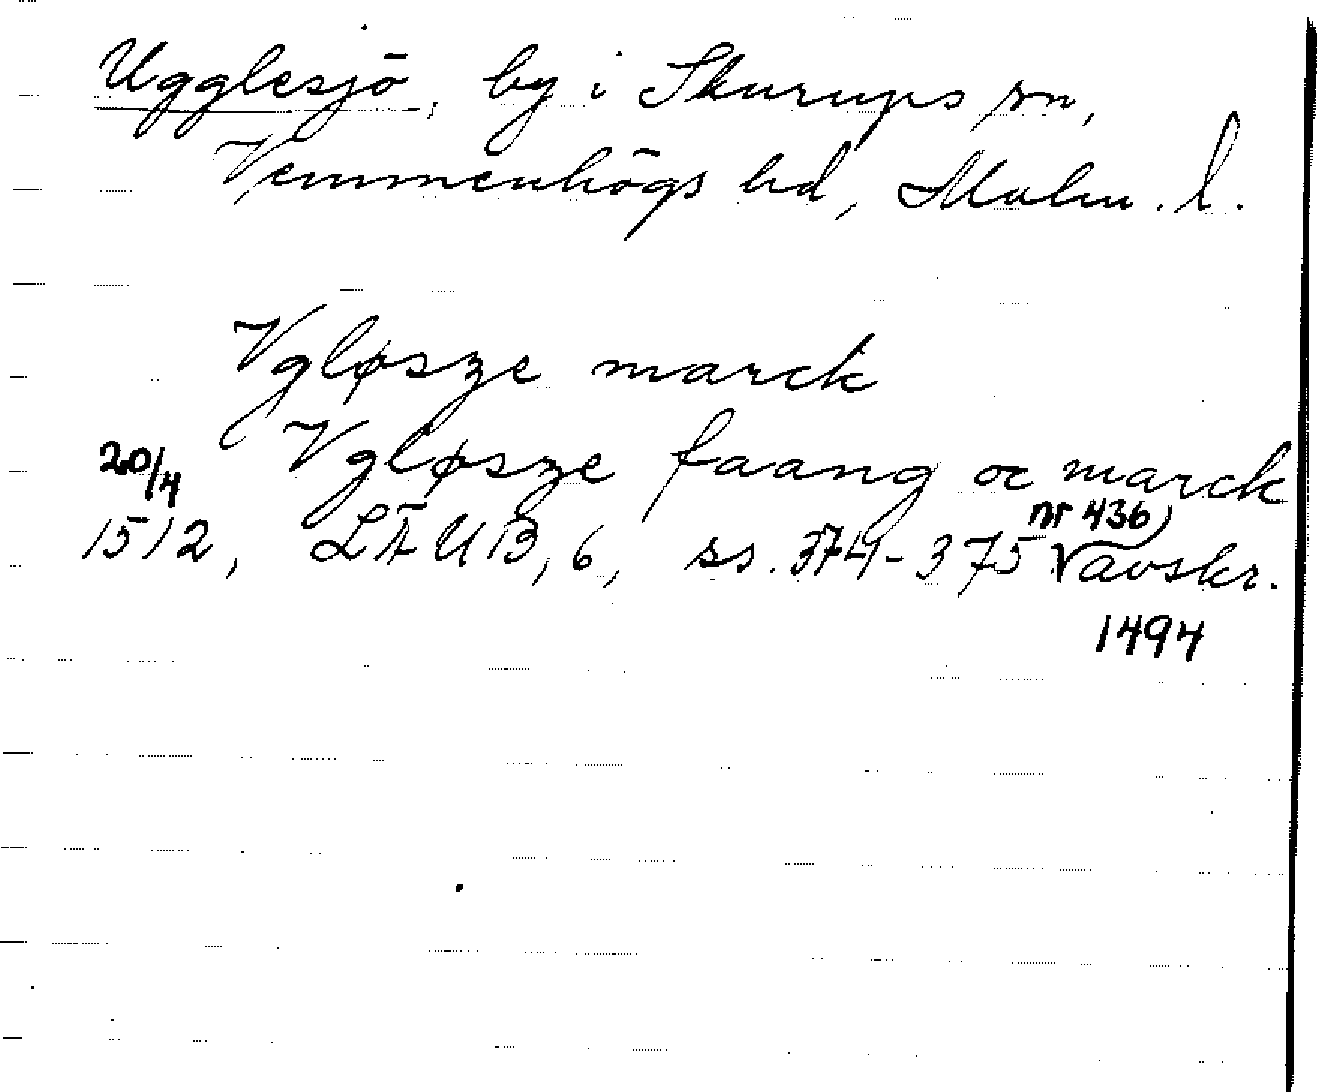 Ugglesjö, by i Skurups sn,
Vemmenhögs hd, Malm. l.
Vgløsze marck
Vgløsze faang oc marck
20/4
nr 436)
1512, LÄUB, 6, ss. 374-375 avskr.
1494